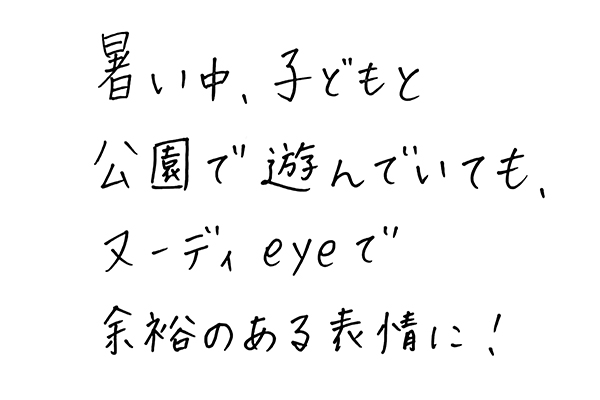 暑い中、子どもと
公園で遊んでいても、
ヌーディeyeで
余裕のある表情に！